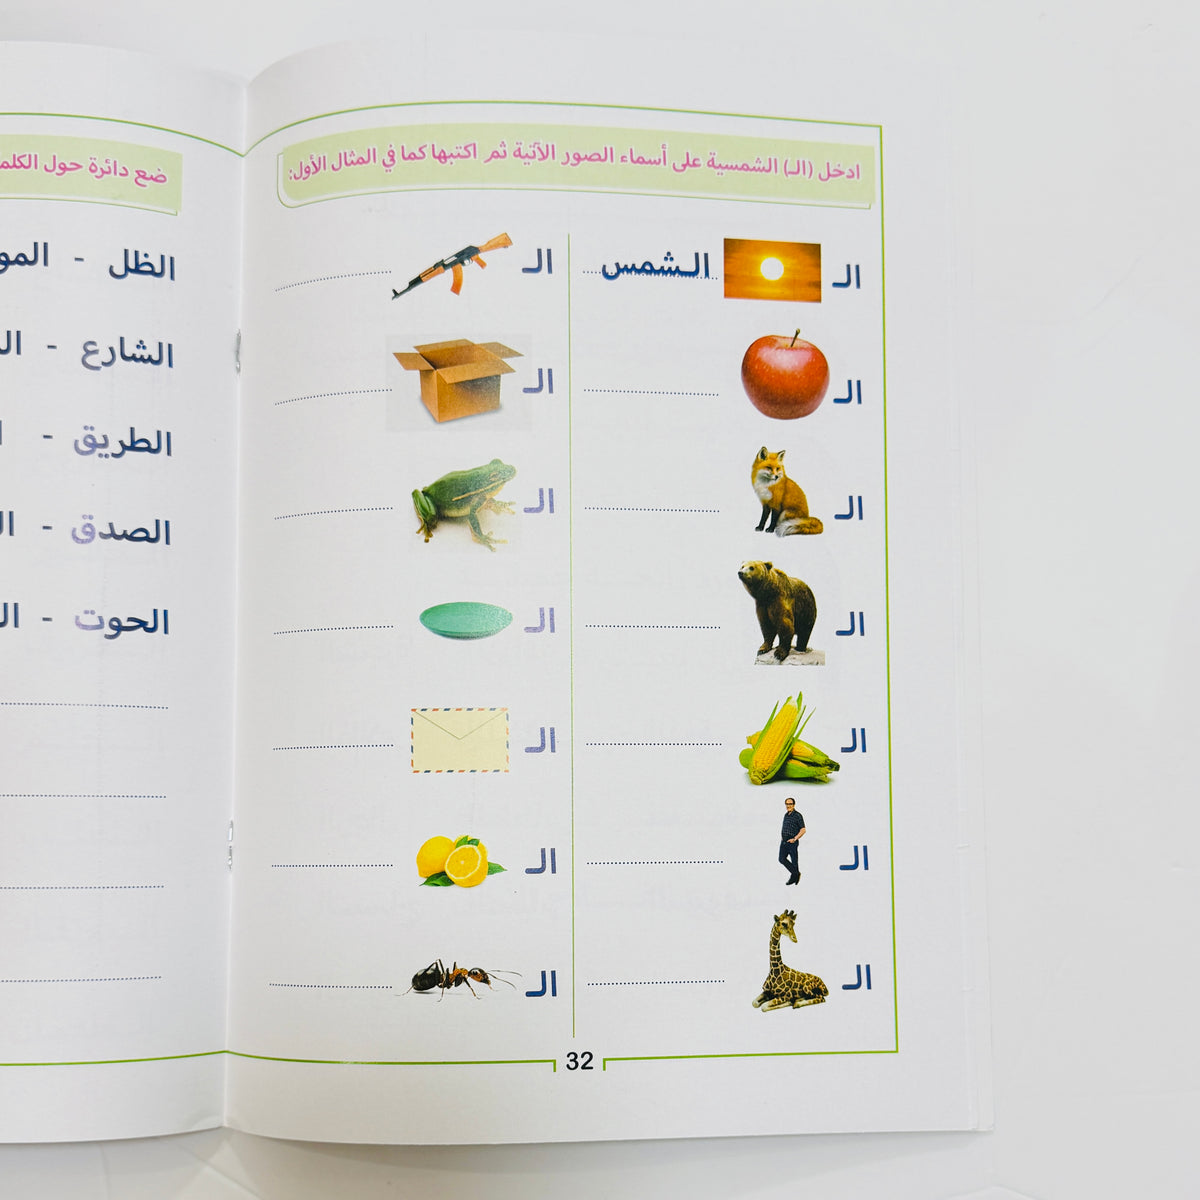 ادخل (الـ) الشمسية على أسماء الصور الآتية ثم اكتبها كما في المثال الأول:
الـ الـشمس
الـ
الـ
الـ
الـ
الـ
الـ
الـ
الـ
الـ
الـ
الـ
الـ
الـ
32
ضع دائرة حول
الظل -
الشارع -
الطريق -
الصدق -
الحوت -